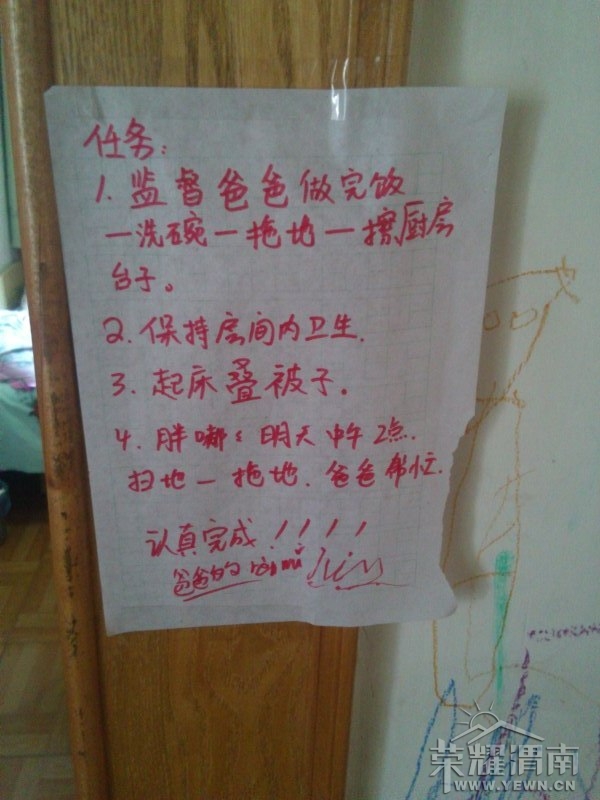 任务:
1. 监督爸爸做完饭
一洗碗一拖地一擦厨房
台子。
2. 保持房间内卫生.
3. 起床叠被子。
4. 胖嘟 明天中午2点.
扫地一拖地. 爸爸帮忙.
认真完成!!!!
爸爸的
荣耀渭南
WWW.YEWN.CN